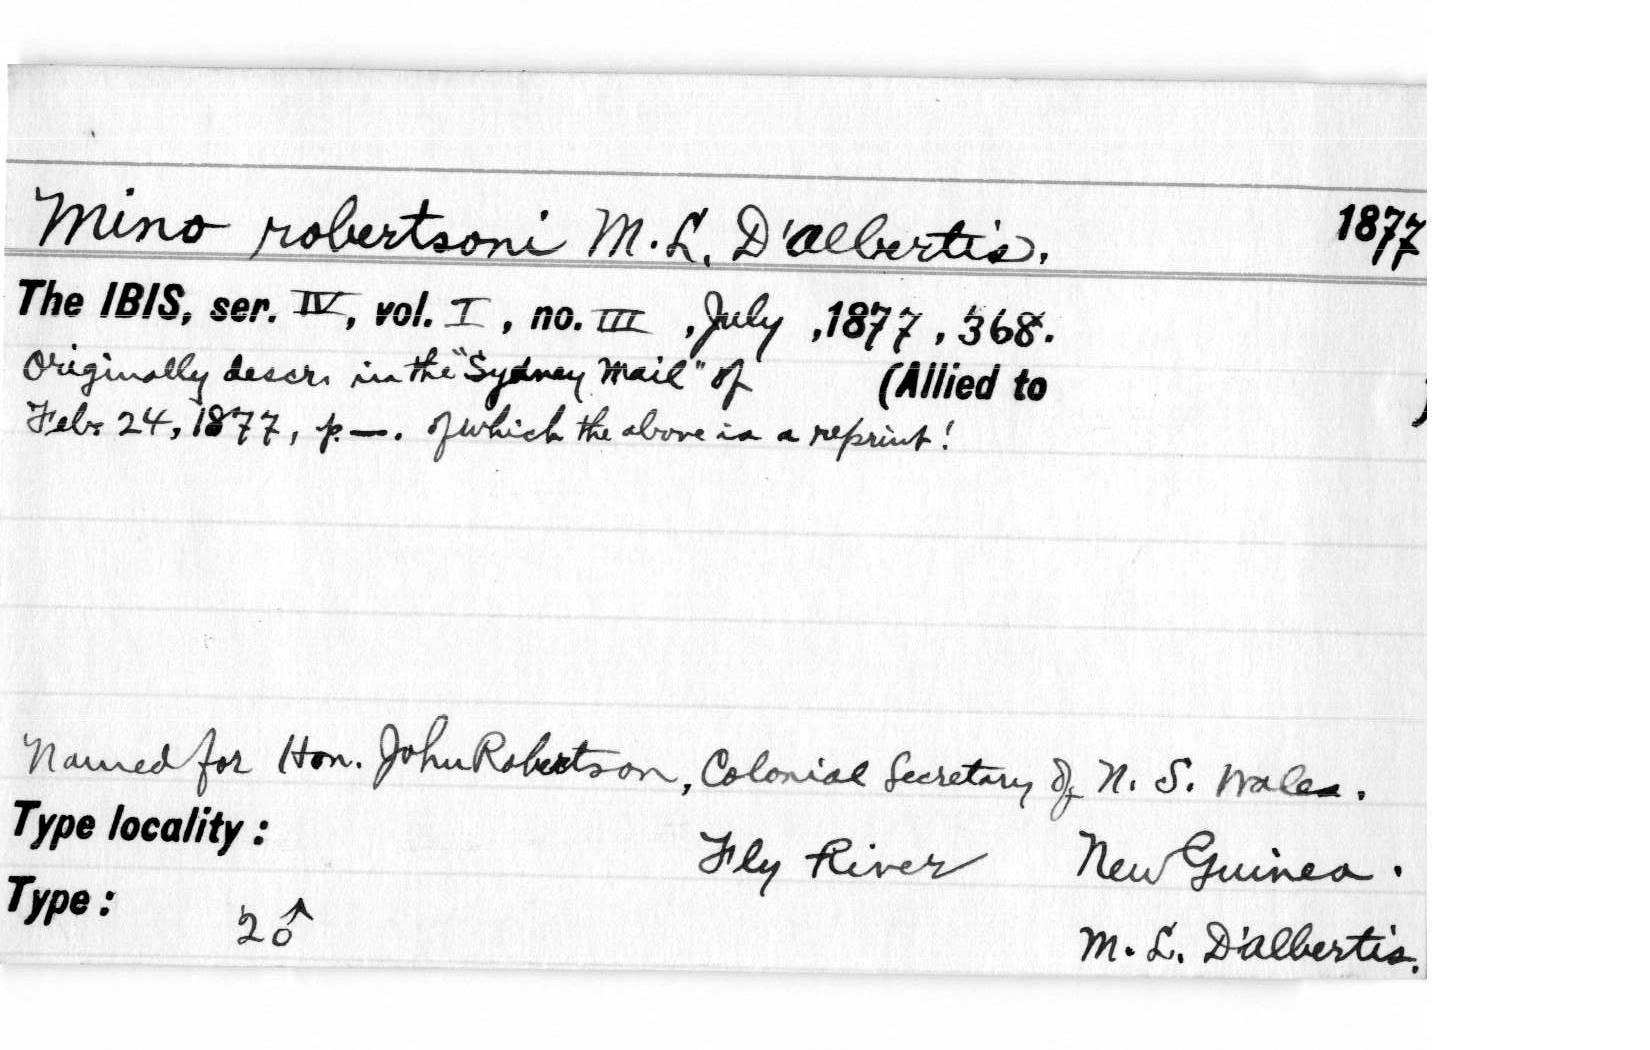 Mino robertsoni M. L. D'albertis. 1877
The IBIS, ser. IV, vol. I, no. III, July, 1877, 368.
Originally descr. in the "Sydney Mail" of (Allied to )
Feb. 24, 1877, p. —. of which the above is a reprint!
Named for Hon. John Robertson, Colonial Secretary of N. S. Wales.
Type locality: Fly River New Guinea.
Type: 2♂
M. L. D'albertis.